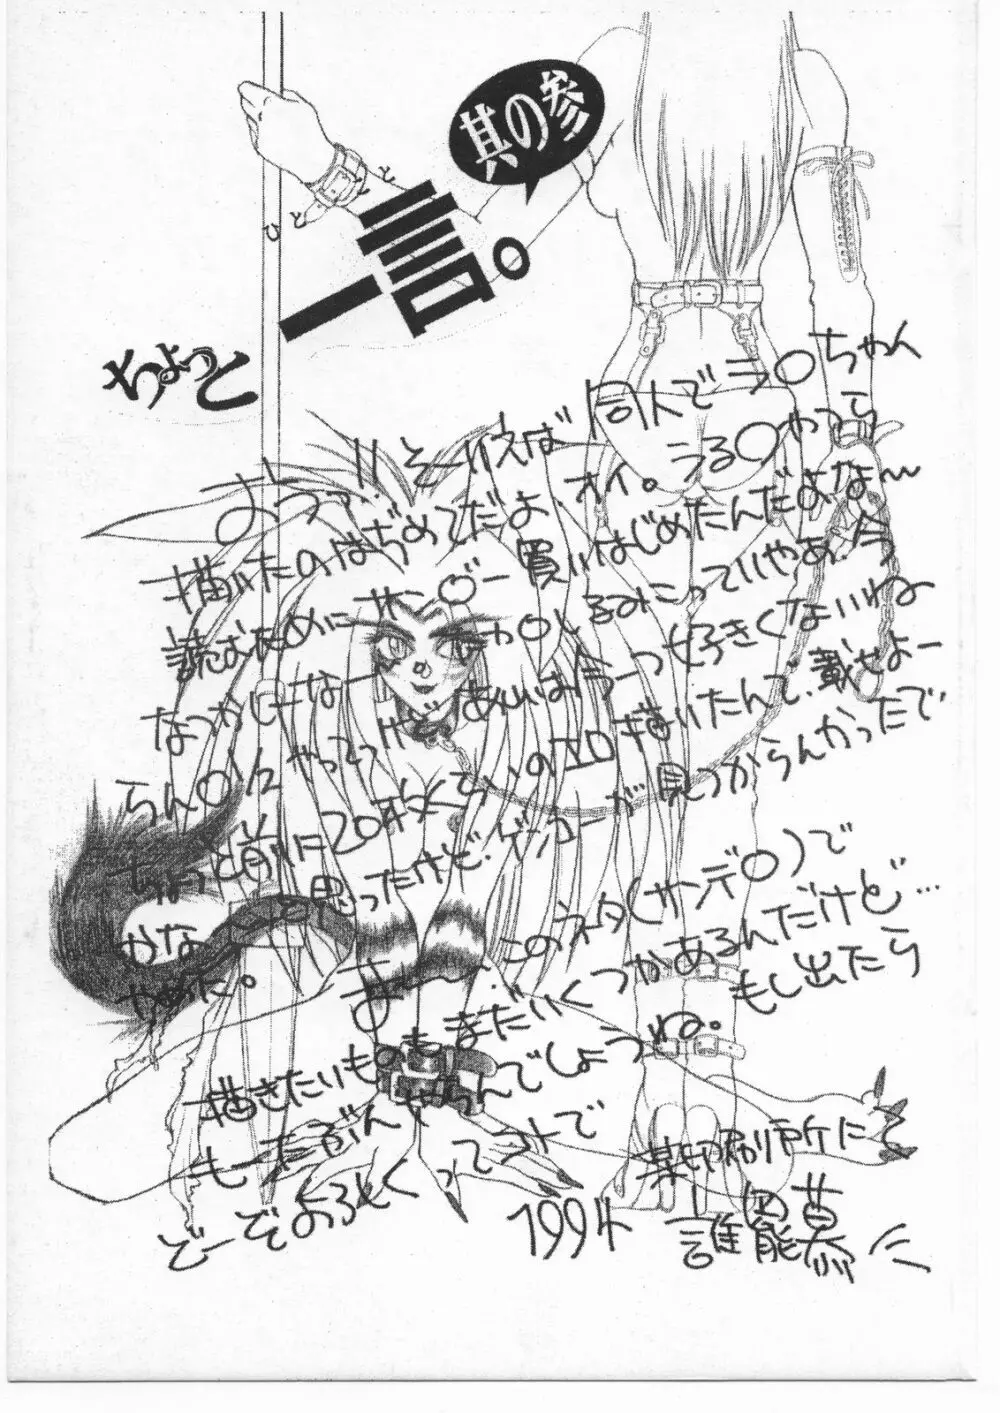 其の参
ちょっと一言。
ひとこと
おうっ!! そーいえば 同人で ラ〇ちゃん
描いたのはぢめてだよ オイ。うる〇やつら
読むために サ〇デー 買いはじめたんだよなー
なつかしーなー キャ〇とるみこっていやあ、今
らん〇1/2 やってっけど あしはあうーつ好きくないね
ちょっと前に20枚くていのエロ描いたんで、載せよー
かな と思ったけど、ゲンコーが見つからんかったで
やめた。 まー、このネタ(サンデ〇)で
描きたいものもまだいくつかあるんだけど…
もーたぶんやらんでしょうね。もし出たら
どーぞよろしくってコトで
1994 某印刷所にて
誰能慕